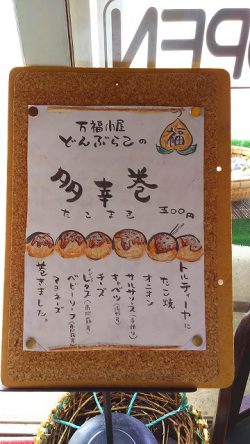 OPEN
福
万福小屋
どんぶらこの
多幸巻
たこまき 500円
トルティーヤに
たこ焼
オニオン
サルサソース(手作り)
キャベツ
チーズ
レタス
ベビーリーフ
マヨネーズ
巻きました。